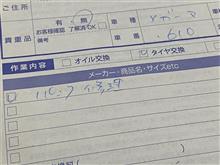 ご住所
有・無
車種 メガーヌ
貴重品
お客様確認 了解済OK
備考
車番 610
作業内容
オイル交換 タイヤ交換
メーカー・商品名・サイズetc
パンク修理